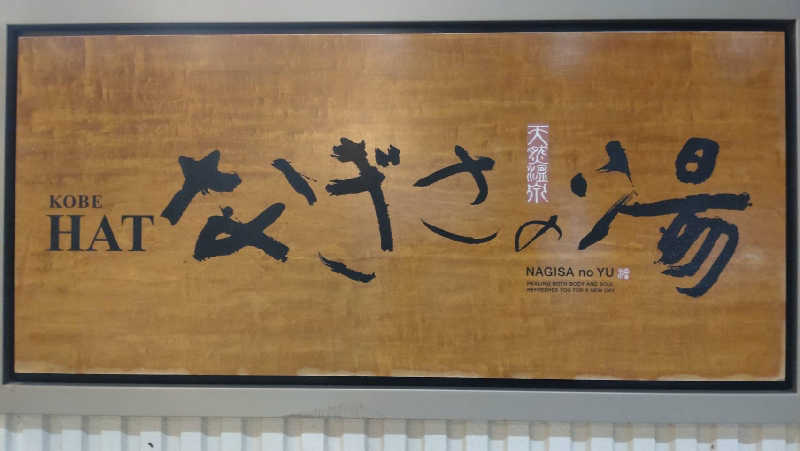 KOBE
HAT
なぎさの湯
天然温泉
NAGISA no YU
HEALING BOTH BODY AND SOUL
REFRESHES YOU FOR A NEW DAY